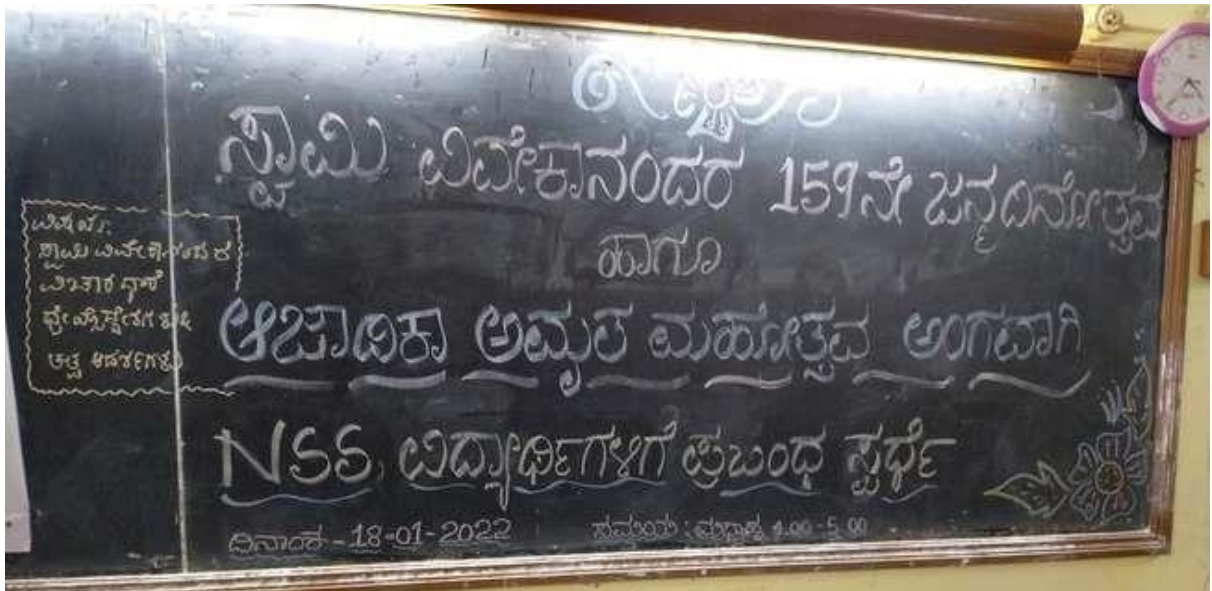 ಸ್ವಾಮಿ ವಿವೇಕಾನಂದರ 159ನೇ ಜನ್ಮದಿನೋತ್ಸವ
ಹಾಗೂ
ಆಜಾದಿಕಾ ಅಮೃತ ಮಹೋತ್ಸವ ಅಂಗವಾಗಿ
NSS ವಿದ್ಯಾರ್ಥಿಗಳಿಗೆ ಪ್ರಬಂಧ ಸ್ಪರ್ಧೆ
ದಿನಾಂಕ - 18-01-2022 ಸಮಯ : ಮಧ್ಯಾಹ್ನ 4.00-5.00
ವಿಷಯ:
ಸ್ವಾಮಿ ವಿವೇಕಾನಂದರ
ವಿಚಾರ ಧಾರೆ
ತತ್ವ ಆದರ್ಶಗಳು